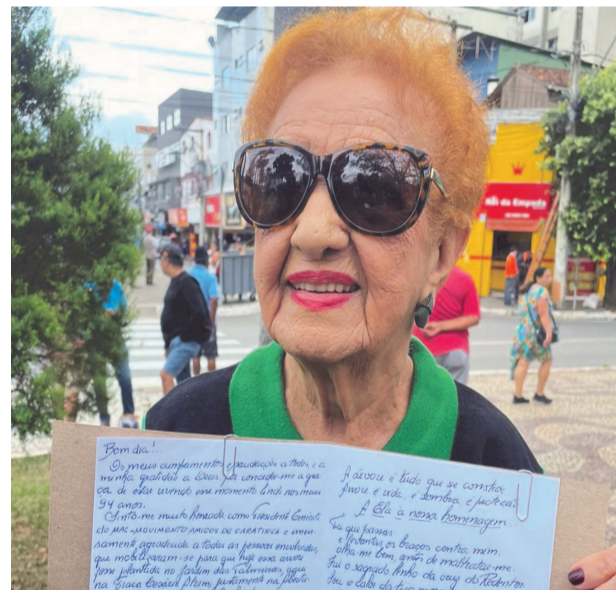 Rei da Empada
Bom dia!...
Os meus cumprimentos e saudações a todos, e a
minha gratidão a Deus por conceder-me a gra-
ça de estar vivendo esse momento lindo nos meus
94 anos.
Sinto-me muito honrada como Presidente
do MAC-MOVIMENTO AMIGOS DE CARATINGA e imen-
samente agradecida a todas as pessoas envolvidas,
que mobilizaram-se para que hoje essa árvore
fosse plantada no Jardim das Palmeiras, aqui
na Praça Cesário Alvim, justamente na
A árvore é tudo que se constrói
Árvore é vida, é sombra, é proteção
A Ela a nossa homenagem.
Tu que passas
e levantas os braços contra mim,
olha-me bem, antes de maltratar-me.
Fui o sagrado linho da cruz do Redentor
Sou o cabo da tua